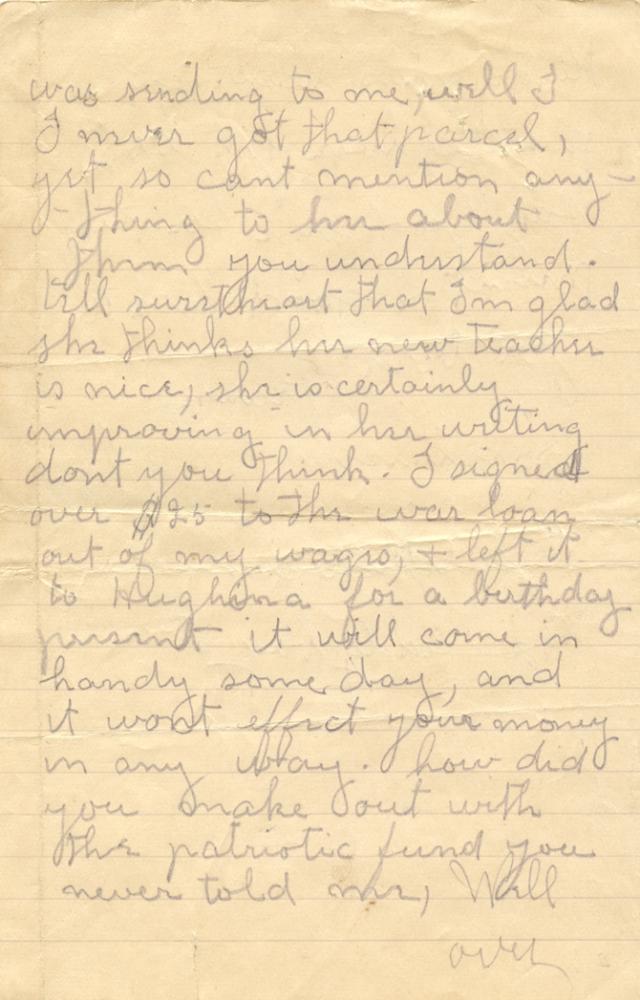 was sending to me, well I
I never got that parcel,
yet so cant mention any-
-thing to her about
them you understand.
tell sweetheart that Im glad
she thinks her new teacher
is nice, she is certainly
improving in her writing
dont you think. I signed
over $25 to the war loan
out of my wages, + left it
to Hughena for a birthday
present it will come in
handy some day, and
it wont effect your money
in any way. how did
you make out with
the patriotic fund you
never told me, Well
over